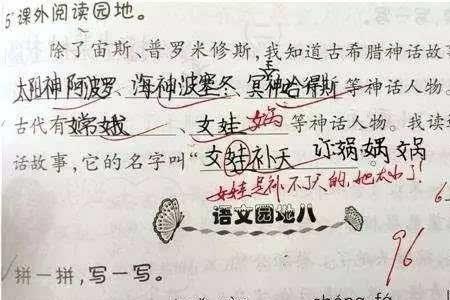 5 课外阅读园地。
除了宙斯、普罗米修斯，我知道古希腊神话故事
太阳神阿波罗、海神波塞冬、冥神哈得斯等神话人物。
古代有嫦娥、女娃 娲 等神话人物。我读
话故事，它的名字叫“女娃补天 订娲娲娲
女娃是补不了天的，她太小了！
语文园地八
96
拼一拼，写一写。